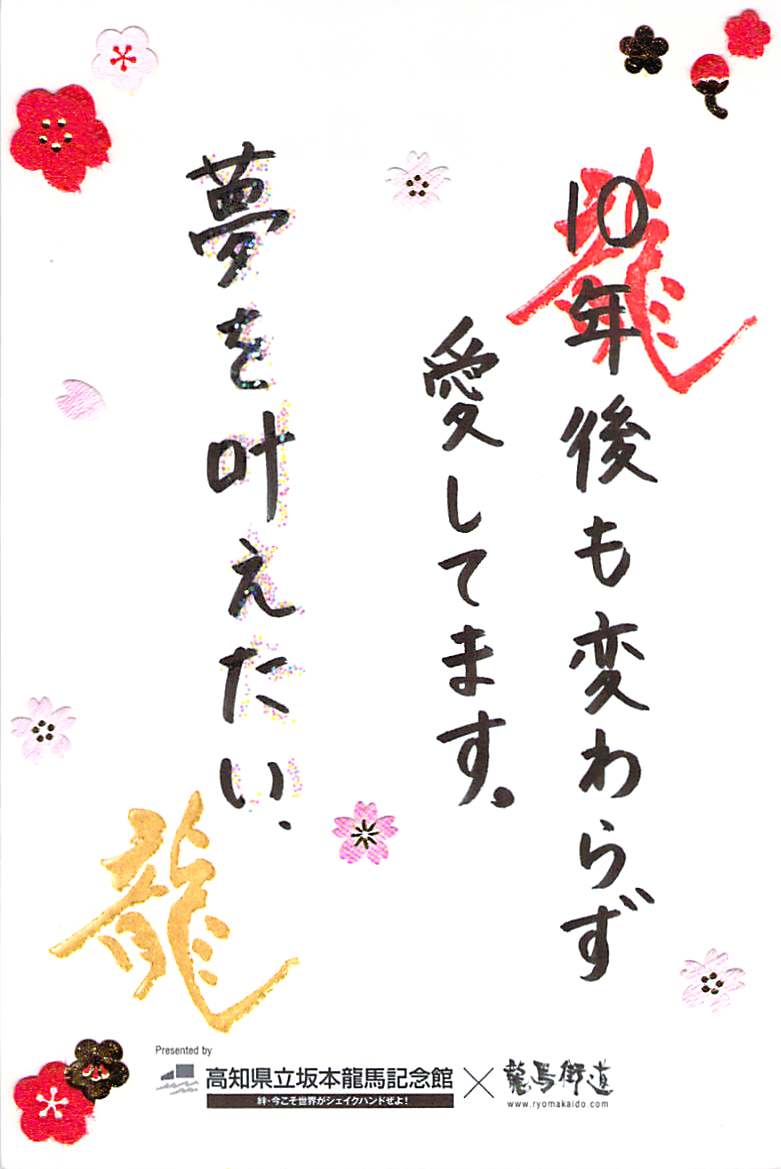 龍
10年後も変わらず
愛してます。
夢を叶えたい.
龍
Presented by
高知県立坂本龍馬記念館
絆・今こそ世界がシェイクハンドぜよ!
×
龍馬街道
www.ryomakaido.com